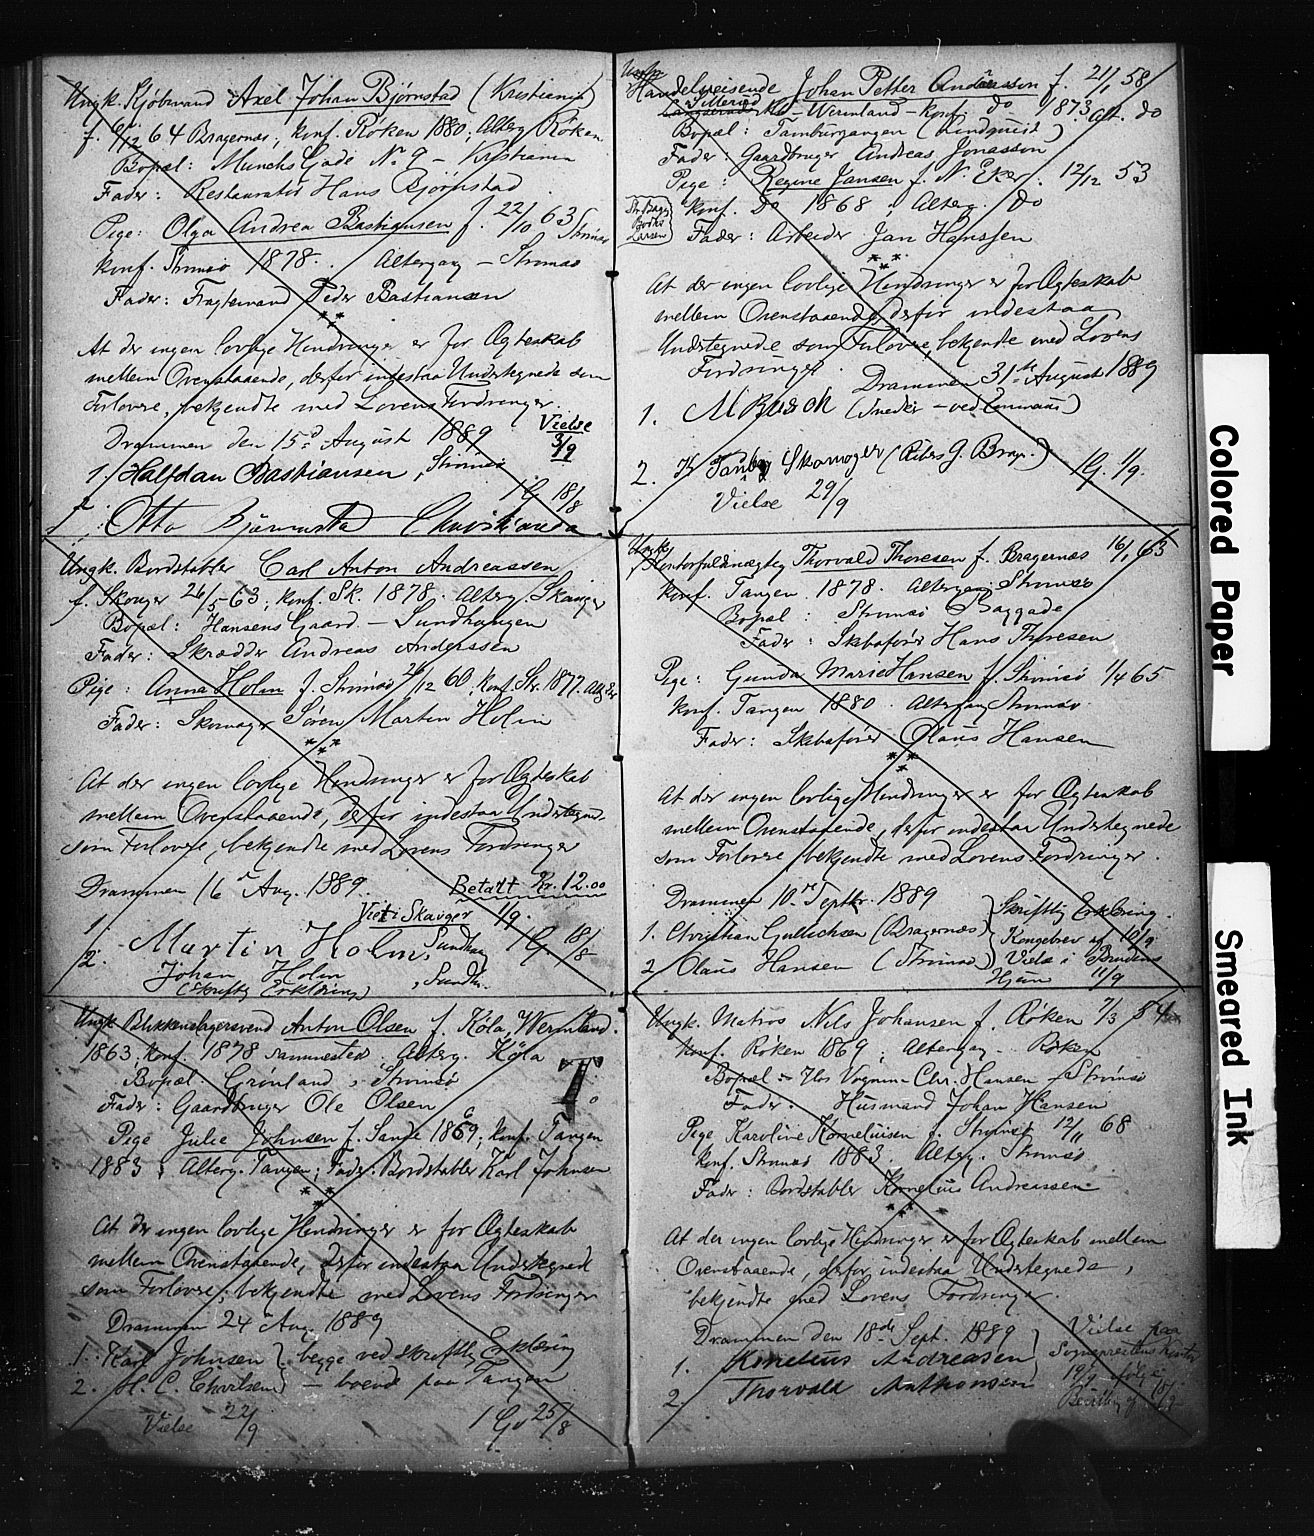 Ungk. Kjøbmand Axel Johan Bjørnstad (Kristiania)
f. 6/12 64 Bragernæs; konf. Røken 1880; Alterg. Røken
Bopæl: Munchs Gade No 9 - Kristiania
Fader: Restauratør Hans Bjørnstad
Pige: Olga Andrea Bastiansen f. 22/10 63 Strømsø
konf. Strømsø 1878. Altergang - Strømsø
Fader: Fragtemand Peder Bastiansen
At der ingen lovlige Hindringer er for Ægteskab
mellem Ovenstaaende, derfor indestaa Undertegnede som
Forlovere, bekjendte med Lovens Fordringer.
Drammen den 15d August 1889
Vielse 3/9
1. Halfdan Bastiansen, Strømsø
1 G. 18/8
2. Otto Bjørnstad Christiania
Ungk. Bordstabler Carl Anton Andreassen
f. Skouger 26/5 63; konf. Sk. 1878. Alterg. Skauger
Bopæl: Hansens Gaard - Sundhaugen
Fader: Skrædder Andreas Anderssen
Pige: Anna Holm f. Strømsø /12 60; konf. Str. 1877. Altg
Fader: Skomager Søren Martin Holm
At der ingen lovlige Hindringer er for Ægteskab
mellem Ovenstaaende, derfor indestaa Undertegn.
som Forlovere, bekjendte med Lovens Fordringer
Drammen 16 Aug. 1889.
Betalt Kr. 12.00
Viet i Skauger 1/9.
1. Martin Holm, Sundhaug
1 G. 18/8
2. Johan Holm, Sundh.
(Skriftlig Erklæring)
Ungk. Blikkenslagersvend Anton Olsen f. Köla, Wermland.
1863; konf. 1878 sammested. Alterg. Köla
Bopæl. Grønland, Strømsø
T
Fader: Gaardbruger Ole Olsen
Pige Julie Johnsen f. Sande 1869; konf. Tangen
1883; Alterg. Tangen; Fader: Bordstabler Karl Johnsen
At der ingen lovlige Hindringer er for Ægteskab
mellem Ovenstaaende, derfor indestaa Undertegned
som Forlovere, bekjendte med Lovens Fordringer
Drammen 24 Aug. 1889
1. Karl Johnsen } begge ved skriftlig Erklæring
2. H. C. Charlsen } - boende paa Tangen
Vielse 22/9
1 G. 25/8
Ungk.
Handelsreisende Johan Petter Andersson f. 21/1 58
- Wermland - konf. do 1873. Alt. do
Bopæl: Tamburgangen (Lindqueist)
Fader: Gaardbruger Andreas Jonasson
Pige: Regine Jansen f. N. Eker. 12/12 53
konf. do 1868; Alterg. do
Fader: Arbeider Jan Hanssen
At der ingen lovlige Hindringer er for Ægteskab
mellem Ovenstaaende, derfor indestaa
Undertegnede som Forlovere, bekjendte med Lovens
Fordringer.
Drammen 31te August 1889
1. M Busch (Snedker - ved Emmaus)
2. Skomager
1 G. 1/9.
Vielse 29/9
Ungk.
Kontorfuldmægtig Thorvald Thoresen f. Bragernæs 16/1 63
konf. Tangen 1878. Altergang Strømsø
Bopæl: Strømsø Baggade
Fader: Skibsfører Hans Thoresen
Pige: Gunda Marie Hansen f. Strømsø 1/4 65
konf. Tangen 1880. Altergang Strømsø.
Fader: Skibsfører Olaus Hansen
At der ingen lovlige Hindringer er for Ægteskab
mellem Ovenstaaende, derfor indestaa Undertegnede
som Forlovere, bekjendte med Lovens Fordringer.
Drammen 10de Septbr. 1889
1. Christian Gulichsen (Bragernæs)
2. Olaus Hansen (Strømsø)
Skriftlig Erklæring.
Kongebrev af 10/9
Vielse i Brudens
Hjem 11/9
Ungk. Matros Nils Johansen f. Røken 7/3 54
konf. Røken 1869; Altergang - Røken
Bopæl: Hos Vognm. Chr. Hansen - Strømsø
Fader: Husmand Johan Hansen
Pige Karoline Korneliusen f. Strømsø 12/11 68
konf. Strømsø 1883. Alterg. Strømsø
Fader: Bordstabler Kornelius Andreassen
At der ingen lovlige Hindringer er for Ægteskab mellem
Ovenstaaende, derfor indestaa Undertegnede,
bekjendte med Lovens Fordringer.
Drammen den 18de Sept. 1889
1. Kornelius Andreasen
2. Thorvald Anthonsen
Vielse paa
Sogneprestens Kontor
19/9 ifølge
18/9
Colored Paper
Smeared Ink